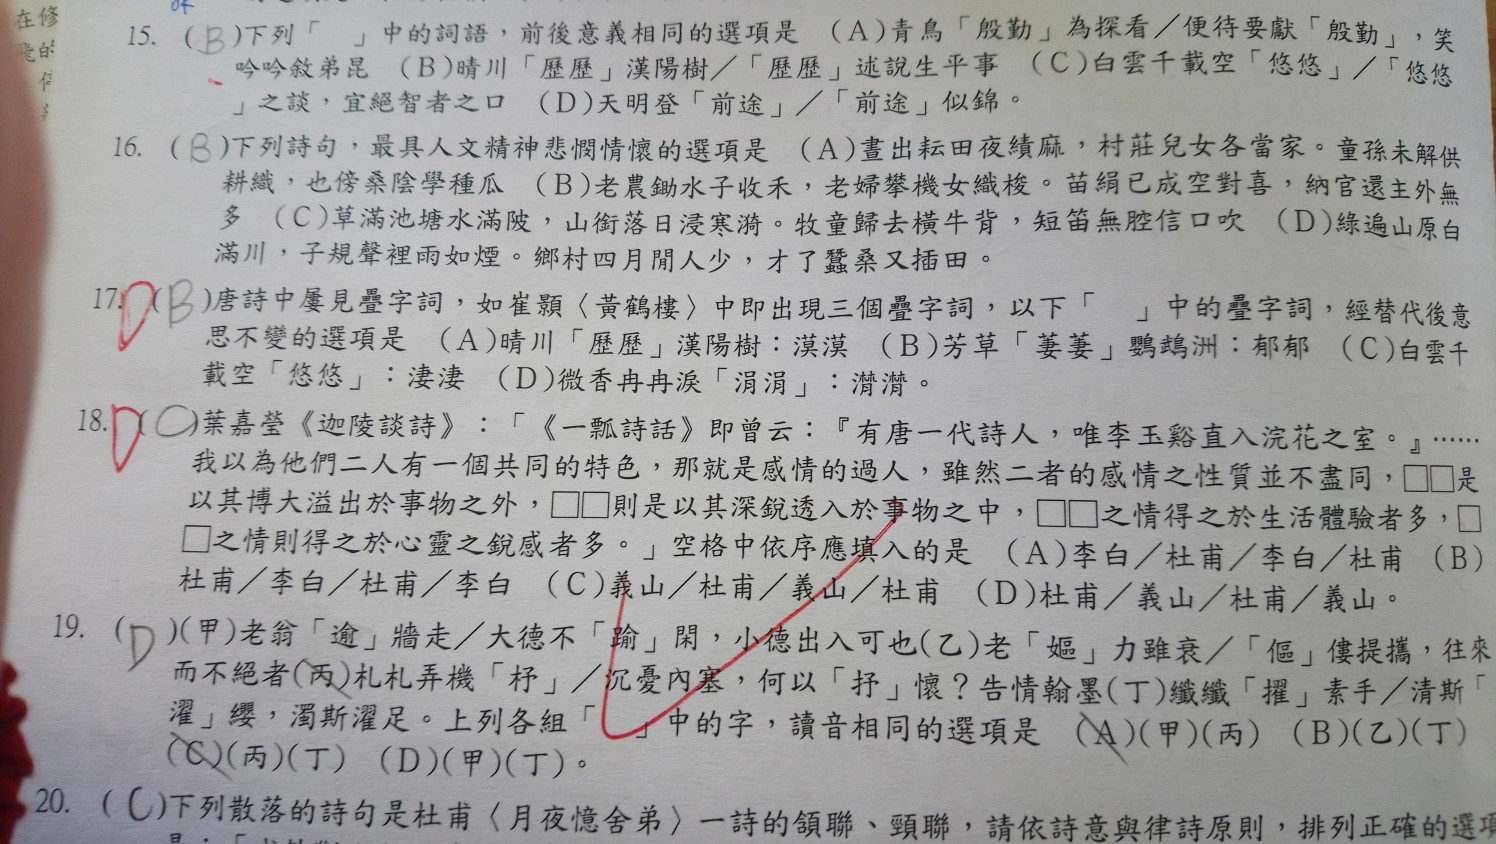 15. (B)下列「　」中的詞語，前後意義相同的選項是　(A)青鳥「殷勤」為探看／便待要獻「殷勤」，笑
吟吟敘弟昆　(B)晴川「歷歷」漢陽樹／「歷歷」述說生平事　(C)白雲千載空「悠悠」／「悠悠
」之談，宜絕智者之口　(D)天明登「前途」／「前途」似錦。
16. (B)下列詩句，最具人文精神悲憫情懷的選項是　(A)晝出耘田夜績麻，村莊兒女各當家。童孫未解供
耕織，也傍桑陰學種瓜　(B)老農鋤水子收禾，老婦攀機女織梭。苗絹已成空對喜，納官還主外無
多　(C)草滿池塘水滿陂，山銜落日浸寒漪。牧童歸去橫牛背，短笛無腔信口吹　(D)綠遍山原白
滿川，子規聲裡雨如煙。鄉村四月閒人少，才了蠶桑又插田。
17. D (B)唐詩中屢見疊字詞，如崔顥〈黃鶴樓〉中即出現三個疊字詞，以下「　」中的疊字詞，經替代後意
思不變的選項是　(A)晴川「歷歷」漢陽樹：漠漠　(B)芳草「萋萋」鸚鵡洲：郁郁　(C)白雲千
載空「悠悠」：淒淒　(D)微香冉冉淚「涓涓」：潸潸。
18. D (C)葉嘉瑩《迦陵談詩》：「《一瓢詩話》即曾云：『有唐一代詩人，唯李玉谿直入浣花之室。』……
我以為他們二人有一個共同的特色，那就是感情的過人，雖然二者的感情之性質並不盡同，□□是
以其博大溢出於事物之外，□□則是以其深銳透入於事物之中，□□之情得之於生活體驗者多，□
□之情則得之於心靈之銳感者多。」空格中依序應填入的是　(A)李白／杜甫／李白／杜甫　(B)
杜甫／李白／杜甫／李白　(C)義山／杜甫／義山／杜甫　(D)杜甫／義山／杜甫／義山。
19. (D)(甲)老翁「逾」牆走／大德不「踰」閑，小德出入可也(乙)老「嫗」力雖衰／「傴」僂提攜，往來
而不絕者(丙)札札弄機「杼」／沉憂內塞，何以「抒」懷？告情翰墨(丁)纖纖「擢」素手／清斯「
濯」纓，濁斯濯足。上列各組「　」中的字，讀音相同的選項是　(A)(甲)(丙)　(B)(乙)(丁)
(C)(丙)(丁)　(D)(甲)(丁)。
20. (C)下列散落的詩句是杜甫〈月夜憶舍弟〉一詩的頷聯、頸聯，請依詩意與律詩原則，排列正確的選項